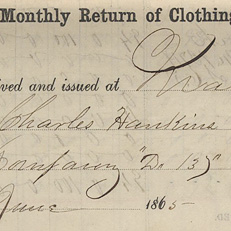 Monthly Return of Clothing
ived and issued at Wa
Charles Hankins
Company "D" 137"
June 1865-